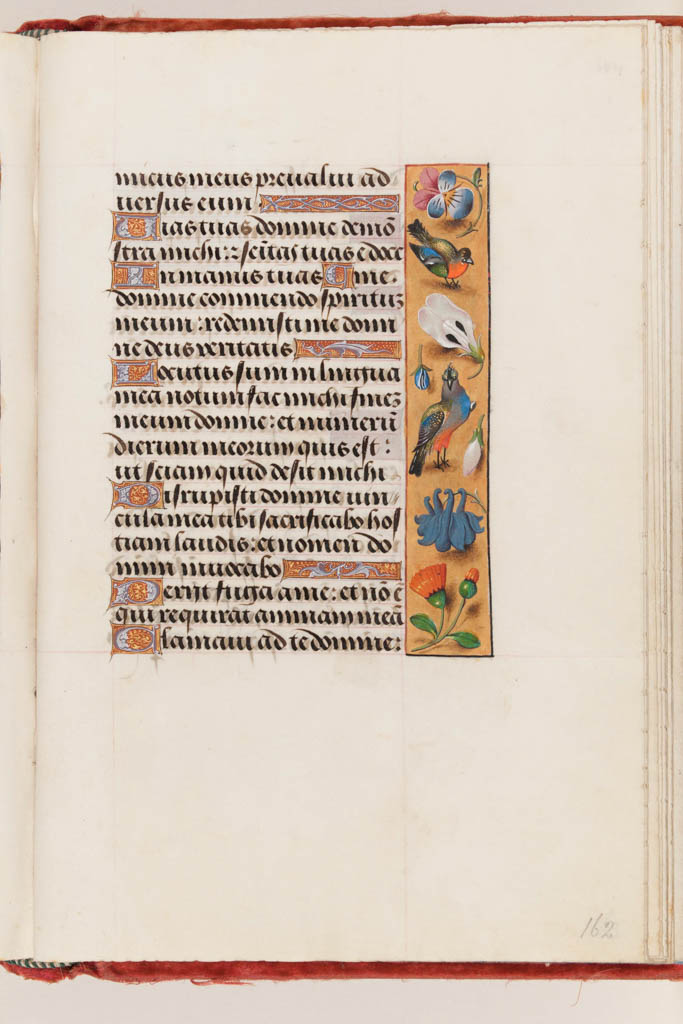 micus meus preualui ad-
uersus eum
Vias tuas domine demõ
stra michi: ⁊ semitas tuas edoce
In manus tuas me.
domine commendo spiritũ
meum: redemisti me domi
ne deus veritatis
Locutus sum in lingua
mea notum fac michi finez
meum domine: et numerũ
dierum meorum quis est:
ut sciam quid desit michi
Disrupisti domine uin-
cula mea tibi sacrificabo hos
tiam laudis: et nomen do
mini inuocabo
Perijt fuga a me: et nõ ẽ
qui requirat animam meã
Clamaui ad te domine:
162